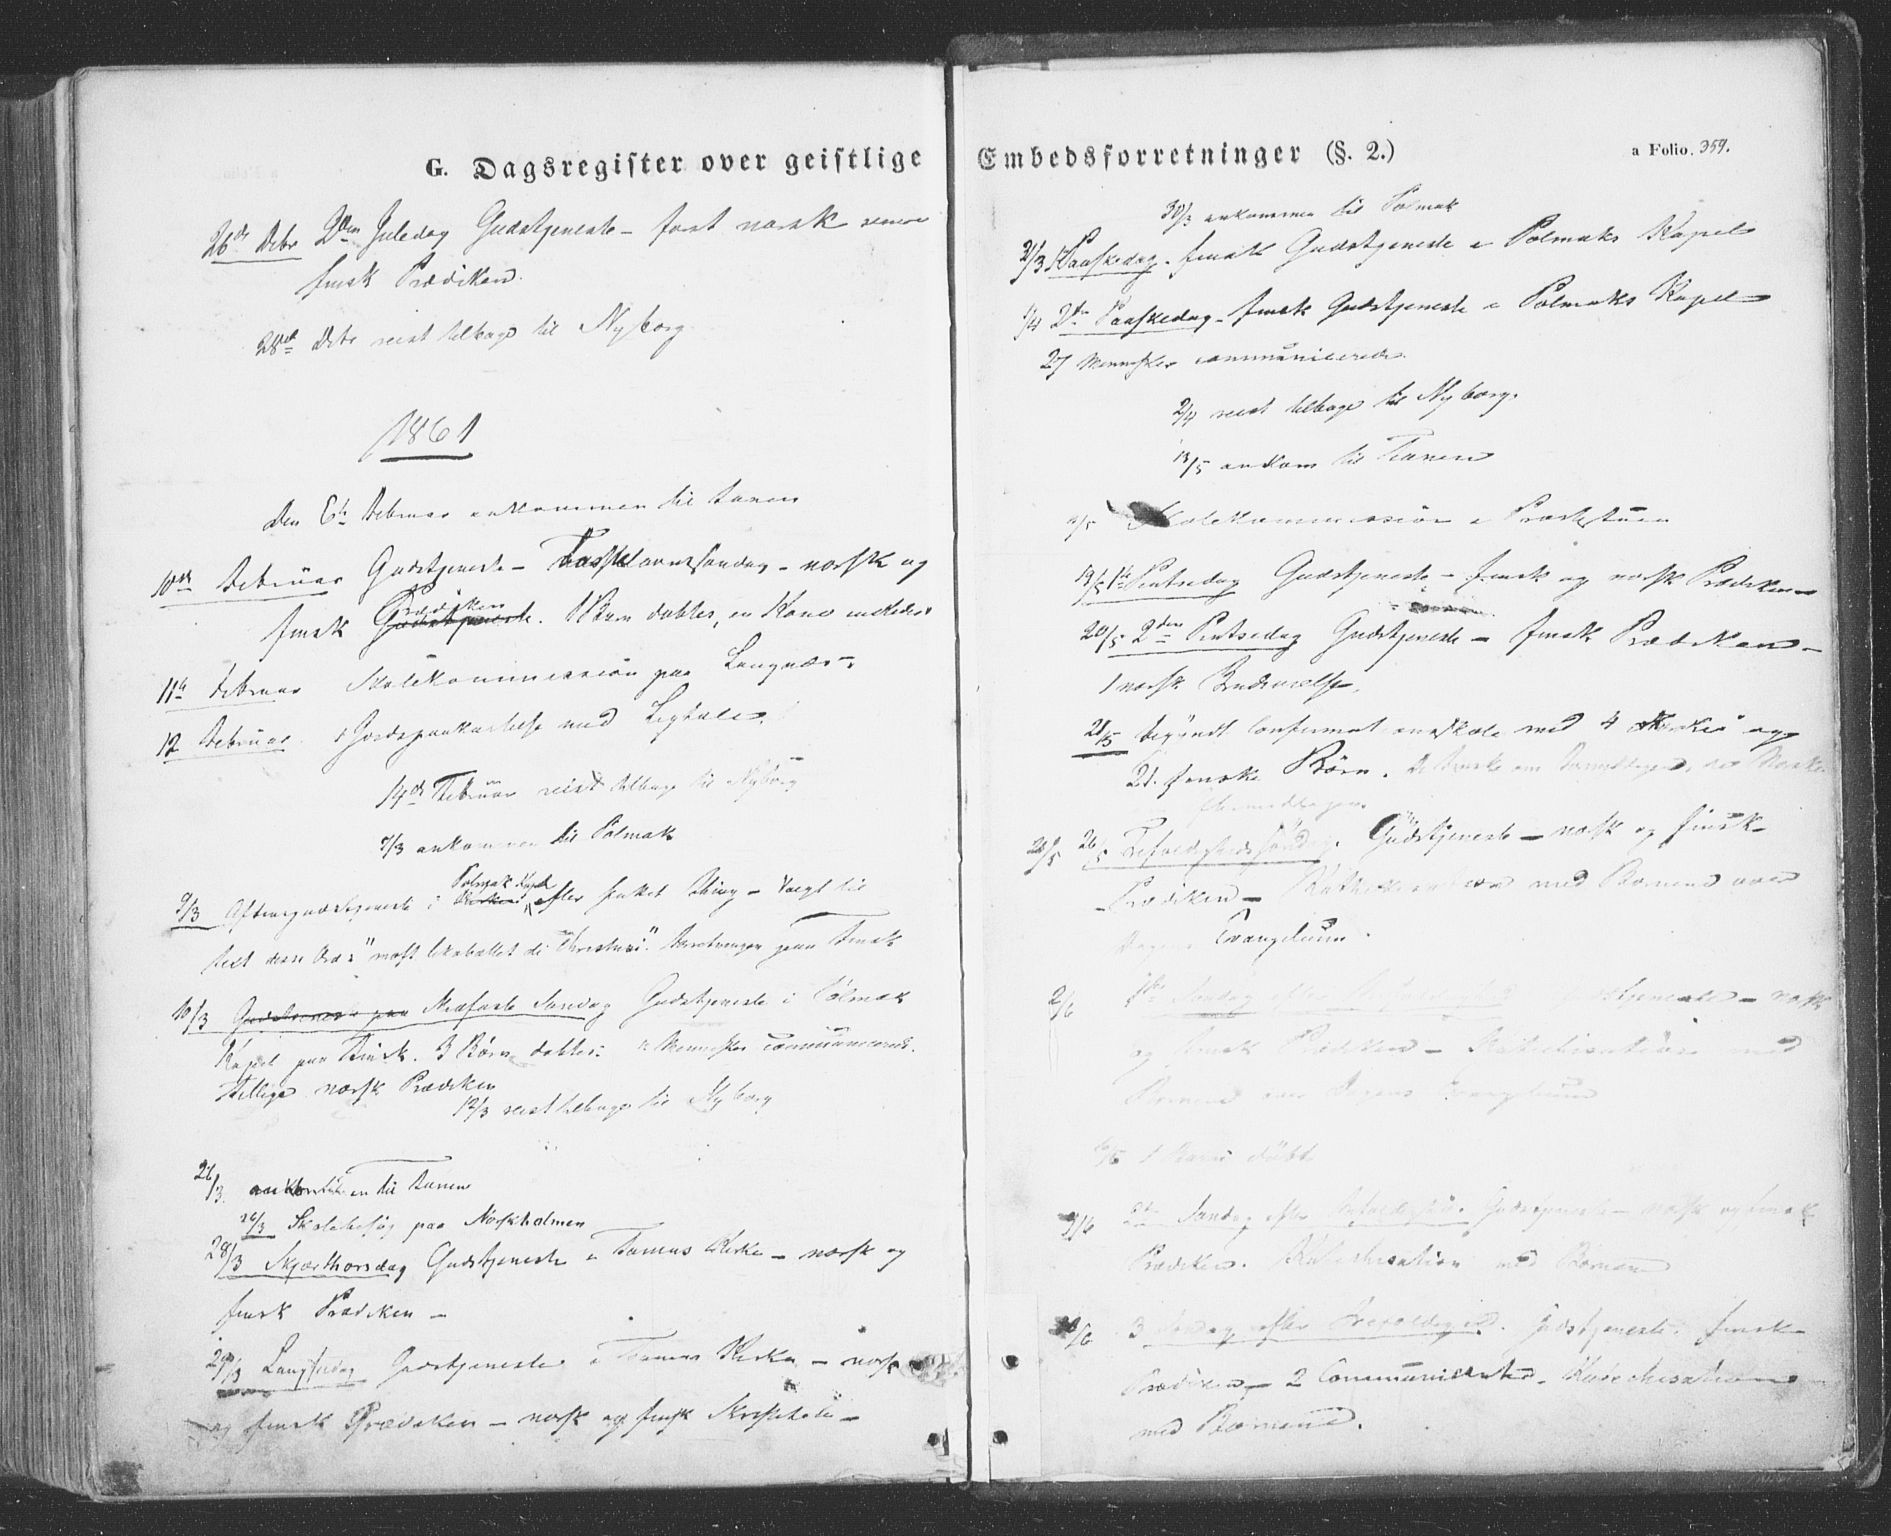 G. Dagsregister over geistlige
26de Debr 2den Juledag Gudstjeneste – først norsk senere
finsk Prædiken.
28de Debr reist tilbage til Nyborg.
1861
Den 6te Februar ankommen til Tanen
10de Februar Gudstjeneste – Fastelavnssøndag – norsk og
Prædiken
finsk Gudstjeneste. 1 Barn døbtes, en Kone indledes
11te Februar Skolekommission paa Langnæs –
12 Februar med
14de Februar reist tilbage til Nyborg
7/3 ankommen til Polmak
Polmak Kapel
9/3 Aftengudstjeneste i Kirken efter Thing – Valgt til
Text disse Ord " " paa Finsk
10/3 Gudstjeneste paa Midfaste Søndag Gudstjeneste i Polmak
Kapel paa Finsk. 3 Børn døbtes. Mennesker communicerede.
Tillige norsk Prædiken
12/3 reist tilbage til Nyborg
26/3. ankommen til Tanen
26/3 Skolebesøg paa Norskholmen
28/3 Skjærthorsdag Gudstjeneste i Tanens Kirke – norsk og
finsk Prædiken –
29/3 Langfredag Gudstjeneste i Tanens Kirke – norsk
og finsk Prædiken – norsk og finsk
Embedsforretninger (§. 2.)
a Folio. 359.
30/3 ankommen til Polmak
31/3 1 Paaskedag. finsk Gudstjeneste i Polmaks Kapel
1/4 2den Paaskedag – finsk Gudstjeneste i Polmaks Kapel –
27 Mennesker communicerede.
2/4 reist tilbage til Nyborg.
13/5 ankom til Tanen
/5 Skolekommission i Præstestuen
19/5 1ste Pintsedag Gudstjeneste – finsk og norsk Prædiken
20/5 2den Pintsedag Gudstjeneste – finsk Prædiken –
1 norsk Brudevielse.
21/5 begyndt Confirmationsskole med 4 norske og
21. finske Børn. De finske om Formiddagen, de Norske
Eftermiddagen
26/5 26/5 Trefoldighedssøndag. Gudstjeneste – norsk og finsk
Prædiken – Katekisation med Børnene over
Dagens Evangelium.
2/6 1ste Søndag efter Gudstjeneste – norsk
og finsk Prædiken – Katechisation med
Børnene over Dagens Evangelium
/6 1 Barn døbt
9/6 2den Søndag efter Trefoldighed. Gudstjeneste – norsk og finsk
Prædiken. Katechisation med Børnene
/6 3 Søndag efter Trefoldighed. Gudstjeneste. finsk
Prædiken – 2 Communicanter. Katechisation
med Børnene.